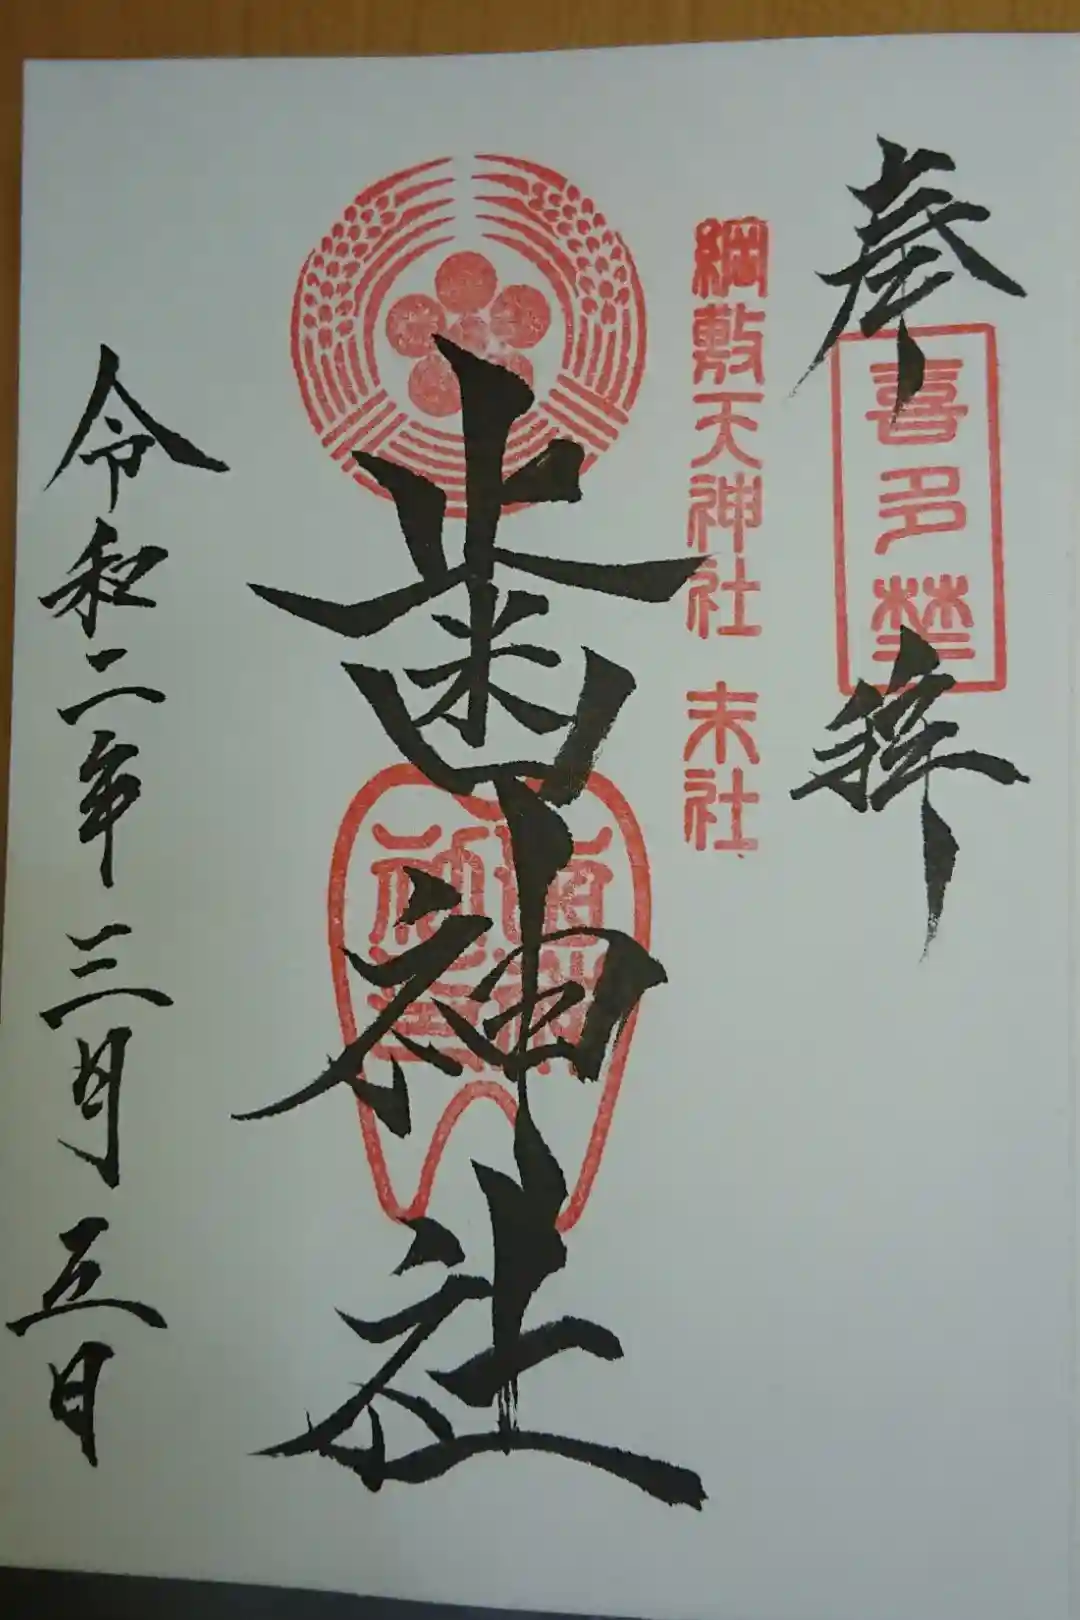 奉拝
喜多埜
綱敷天神社 末社
歯神社
歯神
神社
令和二年三月五日